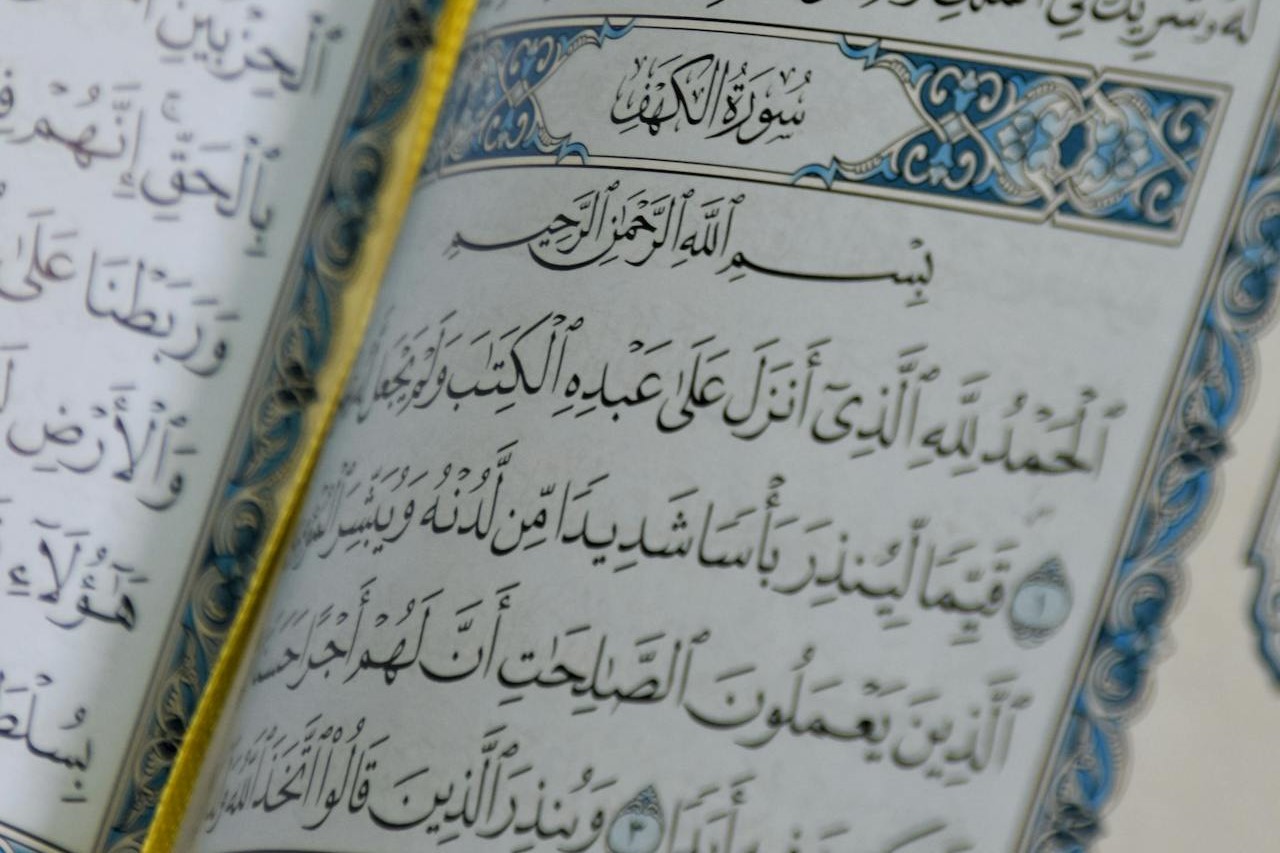 لَّهُۥ شَرِيكٌ فِى ٱلْمُلْكِ
سُورَةُ الكَهْفِ
بِسْمِ ٱللَّهِ ٱلرَّحْمَٰنِ ٱلرَّحِيمِ
ٱلْحَمْدُ لِلَّهِ ٱلَّذِىٓ أَنزَلَ عَلَىٰ عَبْدِهِ ٱلْكِتَٰبَ وَلَمْ يَجْعَل
١ قَيِّمًا لِّيُنذِرَ بَأْسًا شَدِيدًا مِّن لَّدُنْهُ وَيُبَشِّرَ ٱلْمُؤْمِنِينَ
ٱلَّذِينَ يَعْمَلُونَ ٱلصَّٰلِحَٰتِ أَنَّ لَهُمْ أَجْرًا حَسَنًا
فِيهِ أَبَدًا ٣ وَيُنذِرَ ٱلَّذِينَ قَالُوا۟ ٱتَّخَذَ ٱللَّهُ
ٱلْحِزْبَيْنِ
بِٱلْحَقِّ ۚ إِنَّهُمْ
وَرَبَطْنَا عَلَىٰ
وَٱلْأَرْضِ
هَٰٓؤُلَآءِ